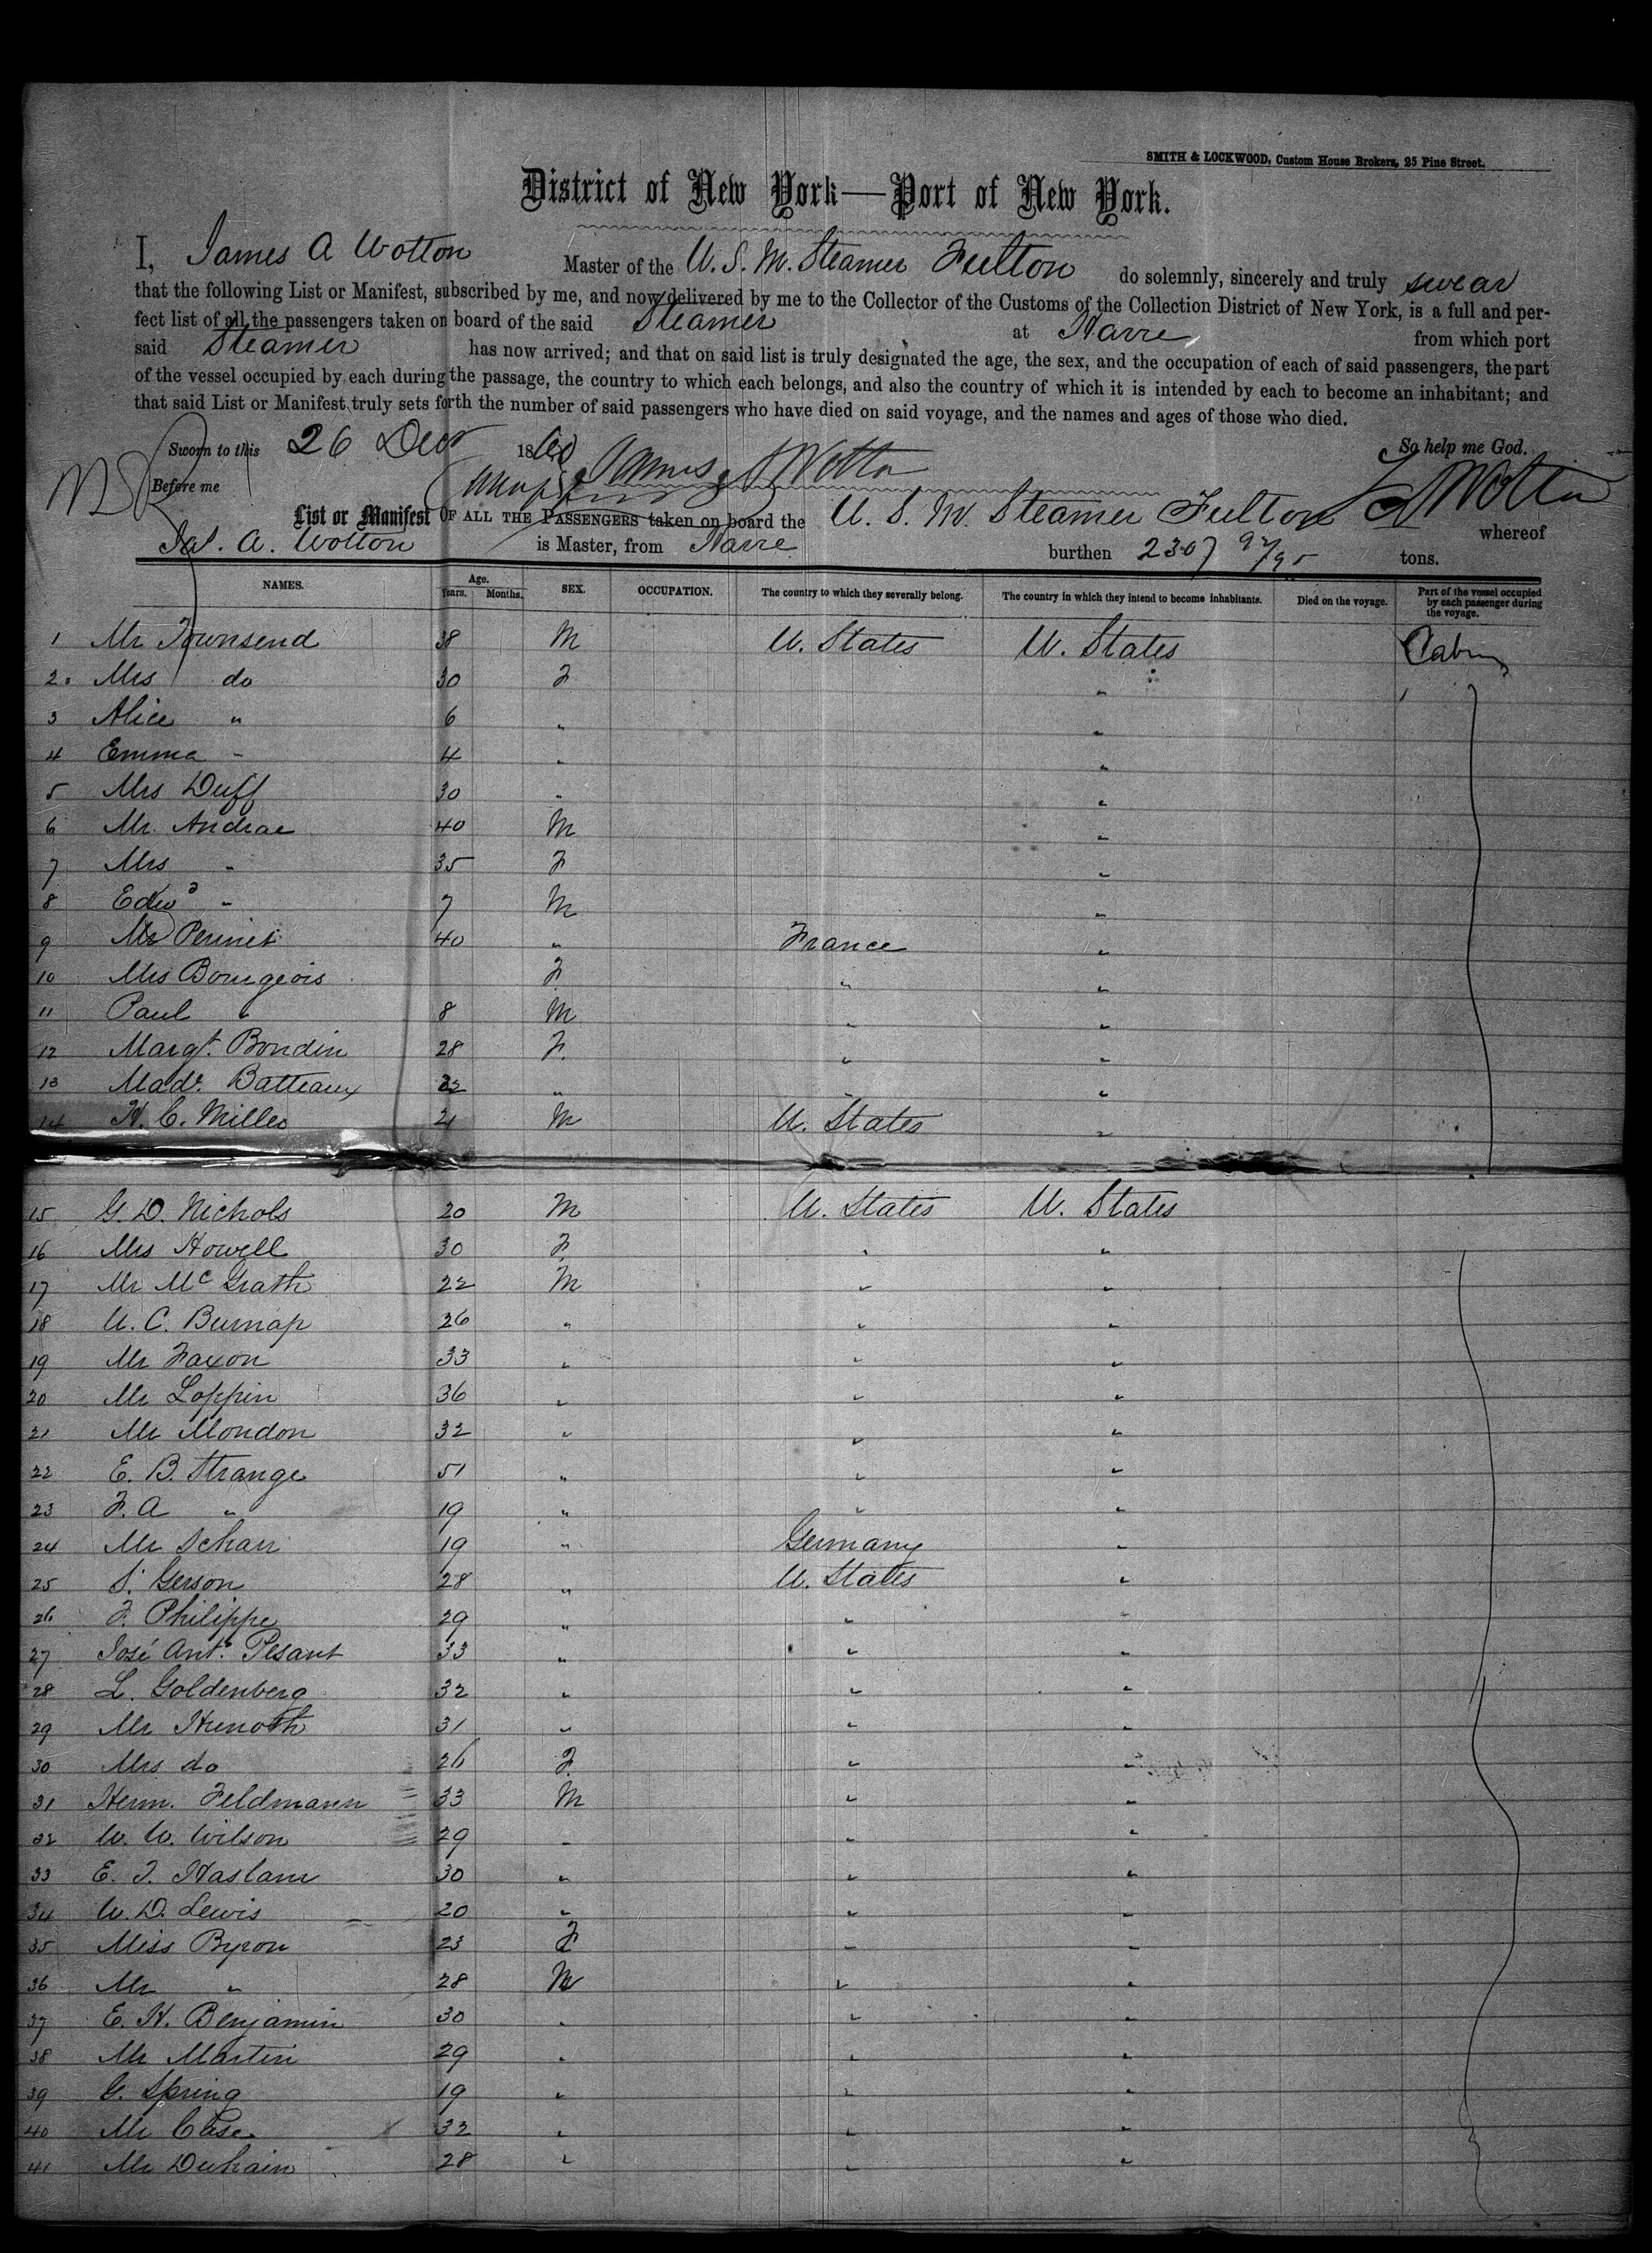 SMITH & LOCKWOOD, Custom House Brokers, 25 Pine Street.
District of New York—Port of New York.
I, James A Wotton Master of the U. S. M. Steamer Fulton do solemnly, sincerely and truly swear
that the following List or Manifest, subscribed by me, and now delivered by me to the Collector of the Customs of the Collection District of New York, is a full and per-
fect list of all the passengers taken on board of the said Steamer at Havre from which port
said Steamer has now arrived; and that on said list is truly designated the age, the sex, and the occupation of each of said passengers, the part
of the vessel occupied by each during the passage, the country to which each belongs, and also the country of which it is intended by each to become an inhabitant; and
that said List or Manifest truly sets forth the number of said passengers who have died on said voyage, and the names and ages of those who died.
Sworn to this 26 Decr 1860 So help me God.
Before me James A Wotton
List or Manifest OF ALL THE PASSENGERS taken on board the U. S. M. Steamer Fulton whereof
Jas. A. Wotton is Master, from Havre burthen 2307 92/95 tons.
NAMES. Age. Years. Months. SEX. OCCUPATION. The country to which they severally belong. The country in which they intend to become inhabitants. Died on the voyage. Part of the vessel occupied by each passenger during the voyage.
1 Mr Townsend 38 M U. States U. States Cabin
2 Mrs do 30 F "
3 Alice " 6 " "
4 Emma " 4 " "
5 Mrs Duff 30 " "
6 Mr. Andrae 40 M "
7 Mrs " 35 F "
8 Edwd " 7 M "
9 Mr Perinet 40 " France "
10 Mrs Bourgeois F " "
11 Paul " 8 M " "
12 Margt. Bondin 28 F. " "
13 Made. Batteaux 22 " " "
14 H. C. Milles 21 M U. States "
15 G. D. Nichols 20 M U. States U. States
16 Mrs Howell 30 F " "
17 Mr McGrath 22 M " "
18 U. C. Burnap 26 " " "
19 Mr Faxon 33 " " "
20 Mr Loppin 36 " " "
21 Mr Mondon 32 " " "
22 E. B. Strange 51 " " "
23 F. A " 19 " " "
24 Mr Scharr 19 " Germany "
25 S. Gerson 28 " U. States "
26 F. Philippe 29 " " "
27 José Anto. Pesant 33 " " "
28 L. Goldenberg 32 " " "
29 Mr Hunoth 31 " " "
30 Mrs do 26 F " "
31 Herm. Feldmann 33 M " "
32 W. W. Wilson 29 " " "
33 E. J. Haslam 30 " " "
34 W. D. Lewis 20 " " "
35 Miss Byron 23 F " "
36 Mr " 28 M " "
37 E. H. Benjamin 30 " " "
38 Mr Martin 29 " " "
39 G. Spring 19 " " "
40 Mr Case 32 " " "
41 Mr Duhain 28 " " "